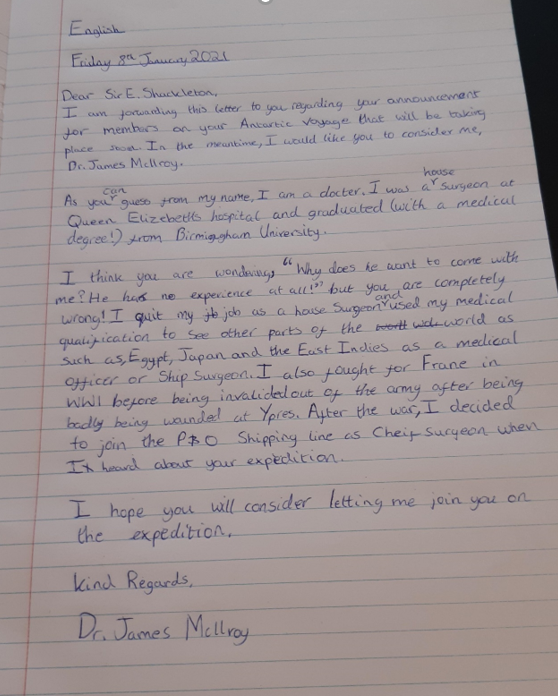 English
Friday 8th January 2021
Dear Sir E. Shackleton,
I am forwarding this letter to you regarding your announcement
for members on your Antarctic Voyage that will be taking
place soon. In the meantime, I would like you to consider me,
Dr. James McIlroy.
can house
As you guess from my name, I am a docter. I was a surgeon at
Queen Elizebeth's hospital and graduated (with a medical
degree!) from Birmigham University.
I think you are wondering, "Why does he want to come with
me? He has no experience at all!" but you are completely
and
wrong! I quit my job as a house surgeon used my medical
qualification to see other parts of the world as
such as, Egypt, Japan and the East Indies as a medical
officer or Ship Surgeon. I also fought for Frane in
WWI before being invalided out of the army after being
badly being wounded at Ypres. After the war, I decided
to join the P&O Shipping line as Cheif Surgeon when
I heard about your expedition.
I hope you will consider letting me join you on
the expedition.
Kind Regards,
Dr. James McIlroy